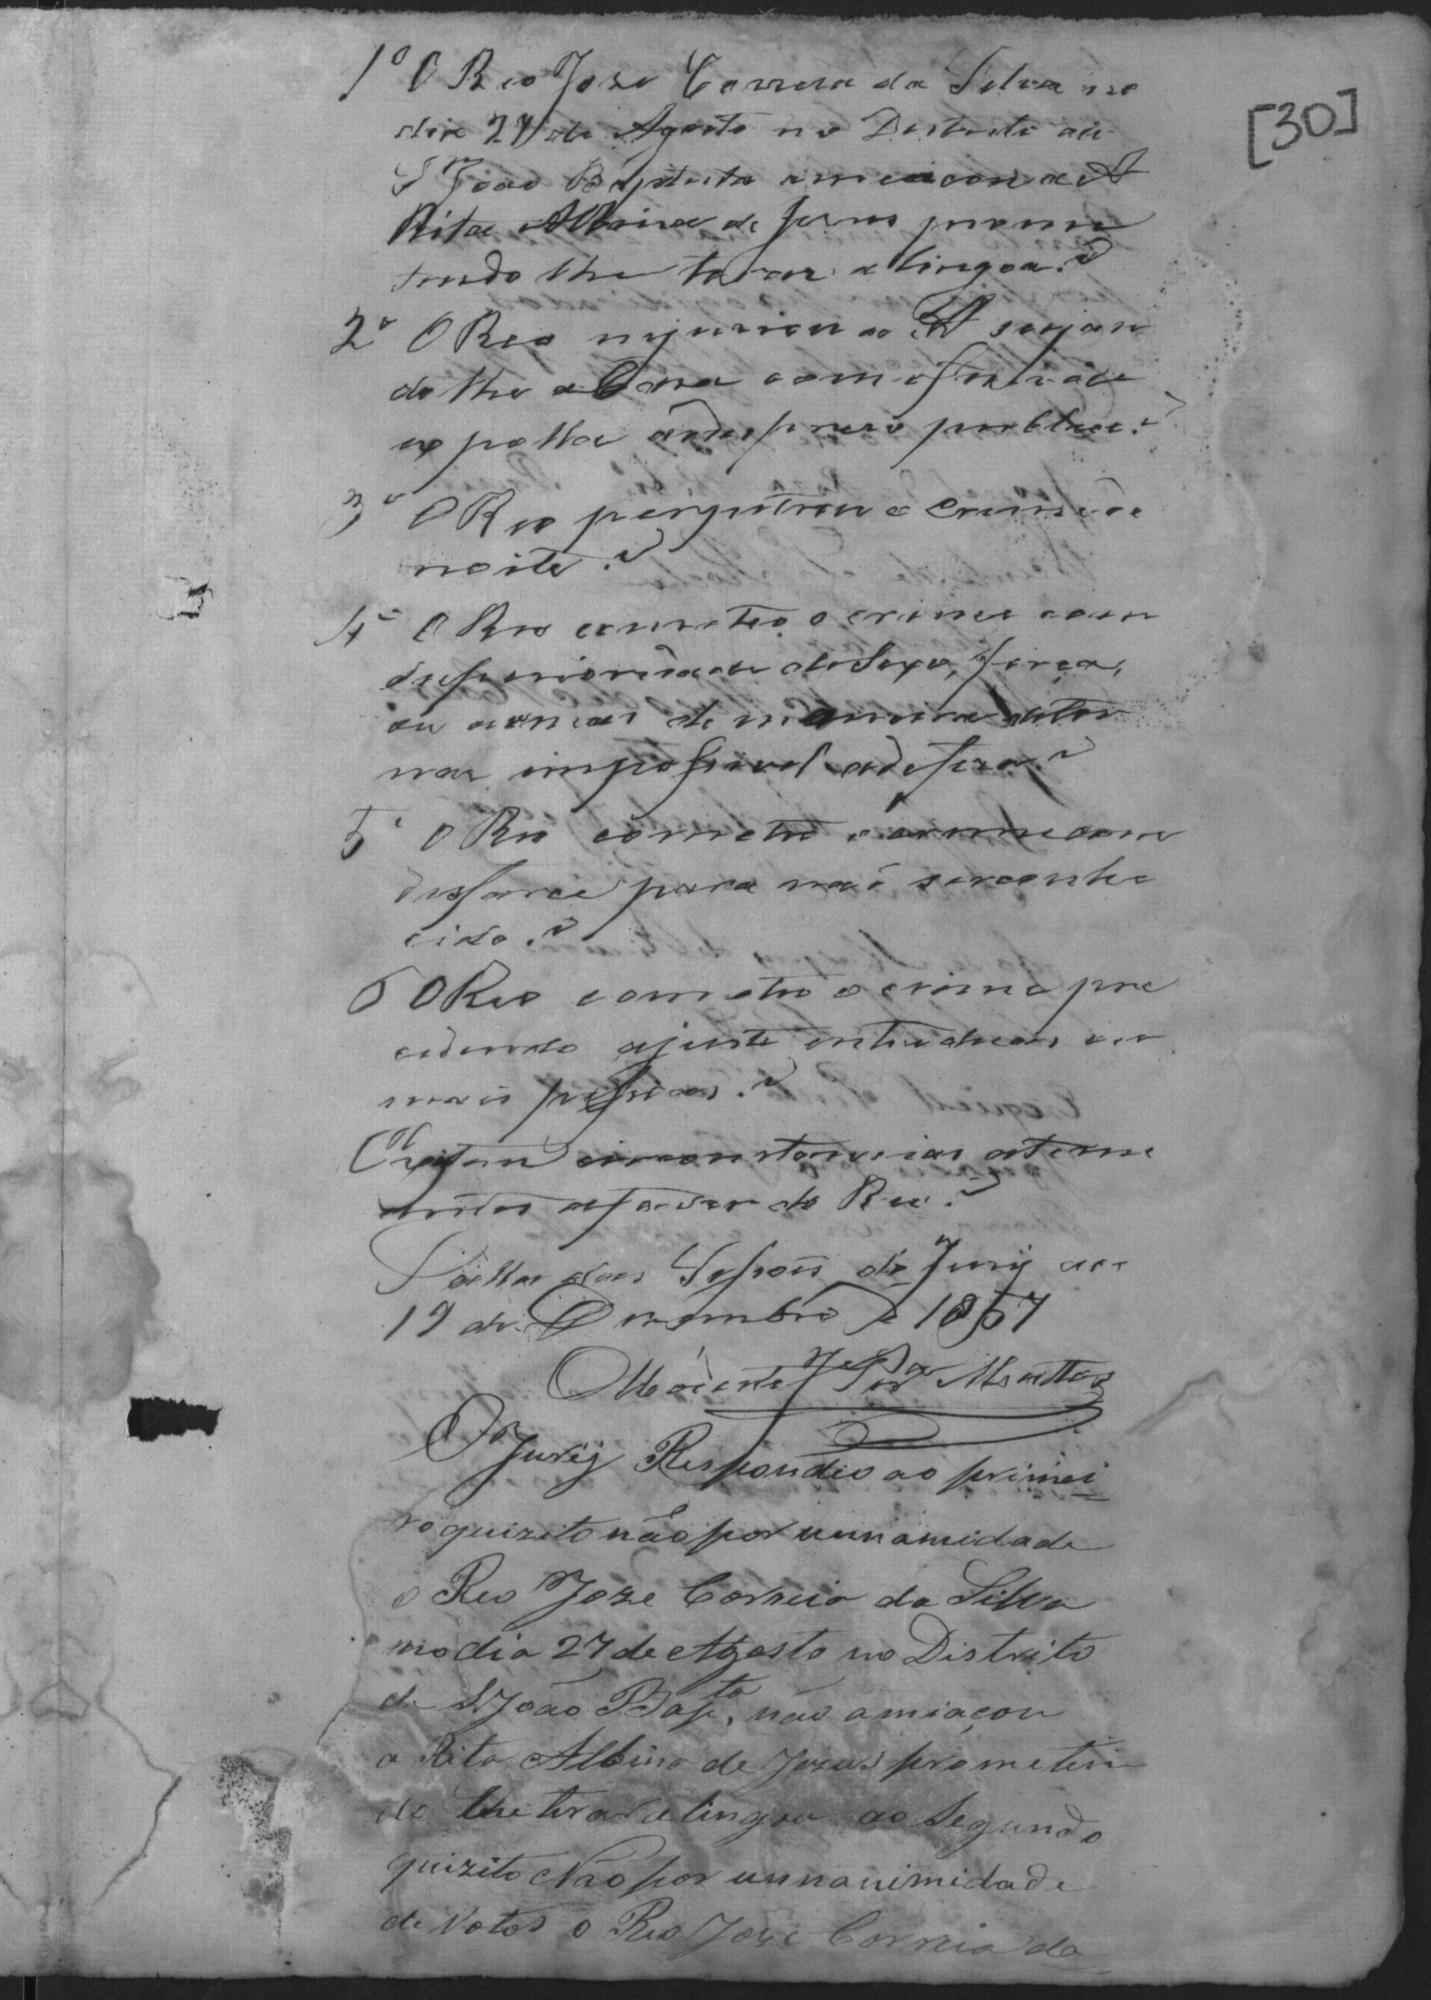 [30]
1º O Reo Joze Correia da Silva no
dia 27 de Agosto no Destrito de
S João Baptista ameacou a A
Rita Albina de Jesus prome
tendo lhe tirar a lingoa?
2º O Reo injuriou a A sujan
do lhe a Cara com
expolla ao despreso publico?
3º O Reo perpetrou o crime de
noite?
4º O Reo cometeo o crime com
superioridade de Sexo, força,
ou armas de maneira detor
nar impossivel adefeza?
5º O Reo cometeo o crime com
disfarce para não serconhe
cido?
6 O Reo cometeo o crime pre
cedendo ajuste entre duas ou
mais pessoas?
Existem circonstancias atenu
antes afavor do Reo?
Salla das Sessoes do Jury aos
19 de Dezembro de 1857
Mattos
O Jurij Respondeo ao primei
ro quizito não por unnamidade
o Reo Joze Correia da Silva
no dia 27 de Agosto no Distrito
de S João Bapta, não amiaçou
a Rita Albina de Jezus prometen
do lhe tirar a lingoa ao Segundo
quizito Não por unnanimidade
de Votos o Reo Joze Correia da